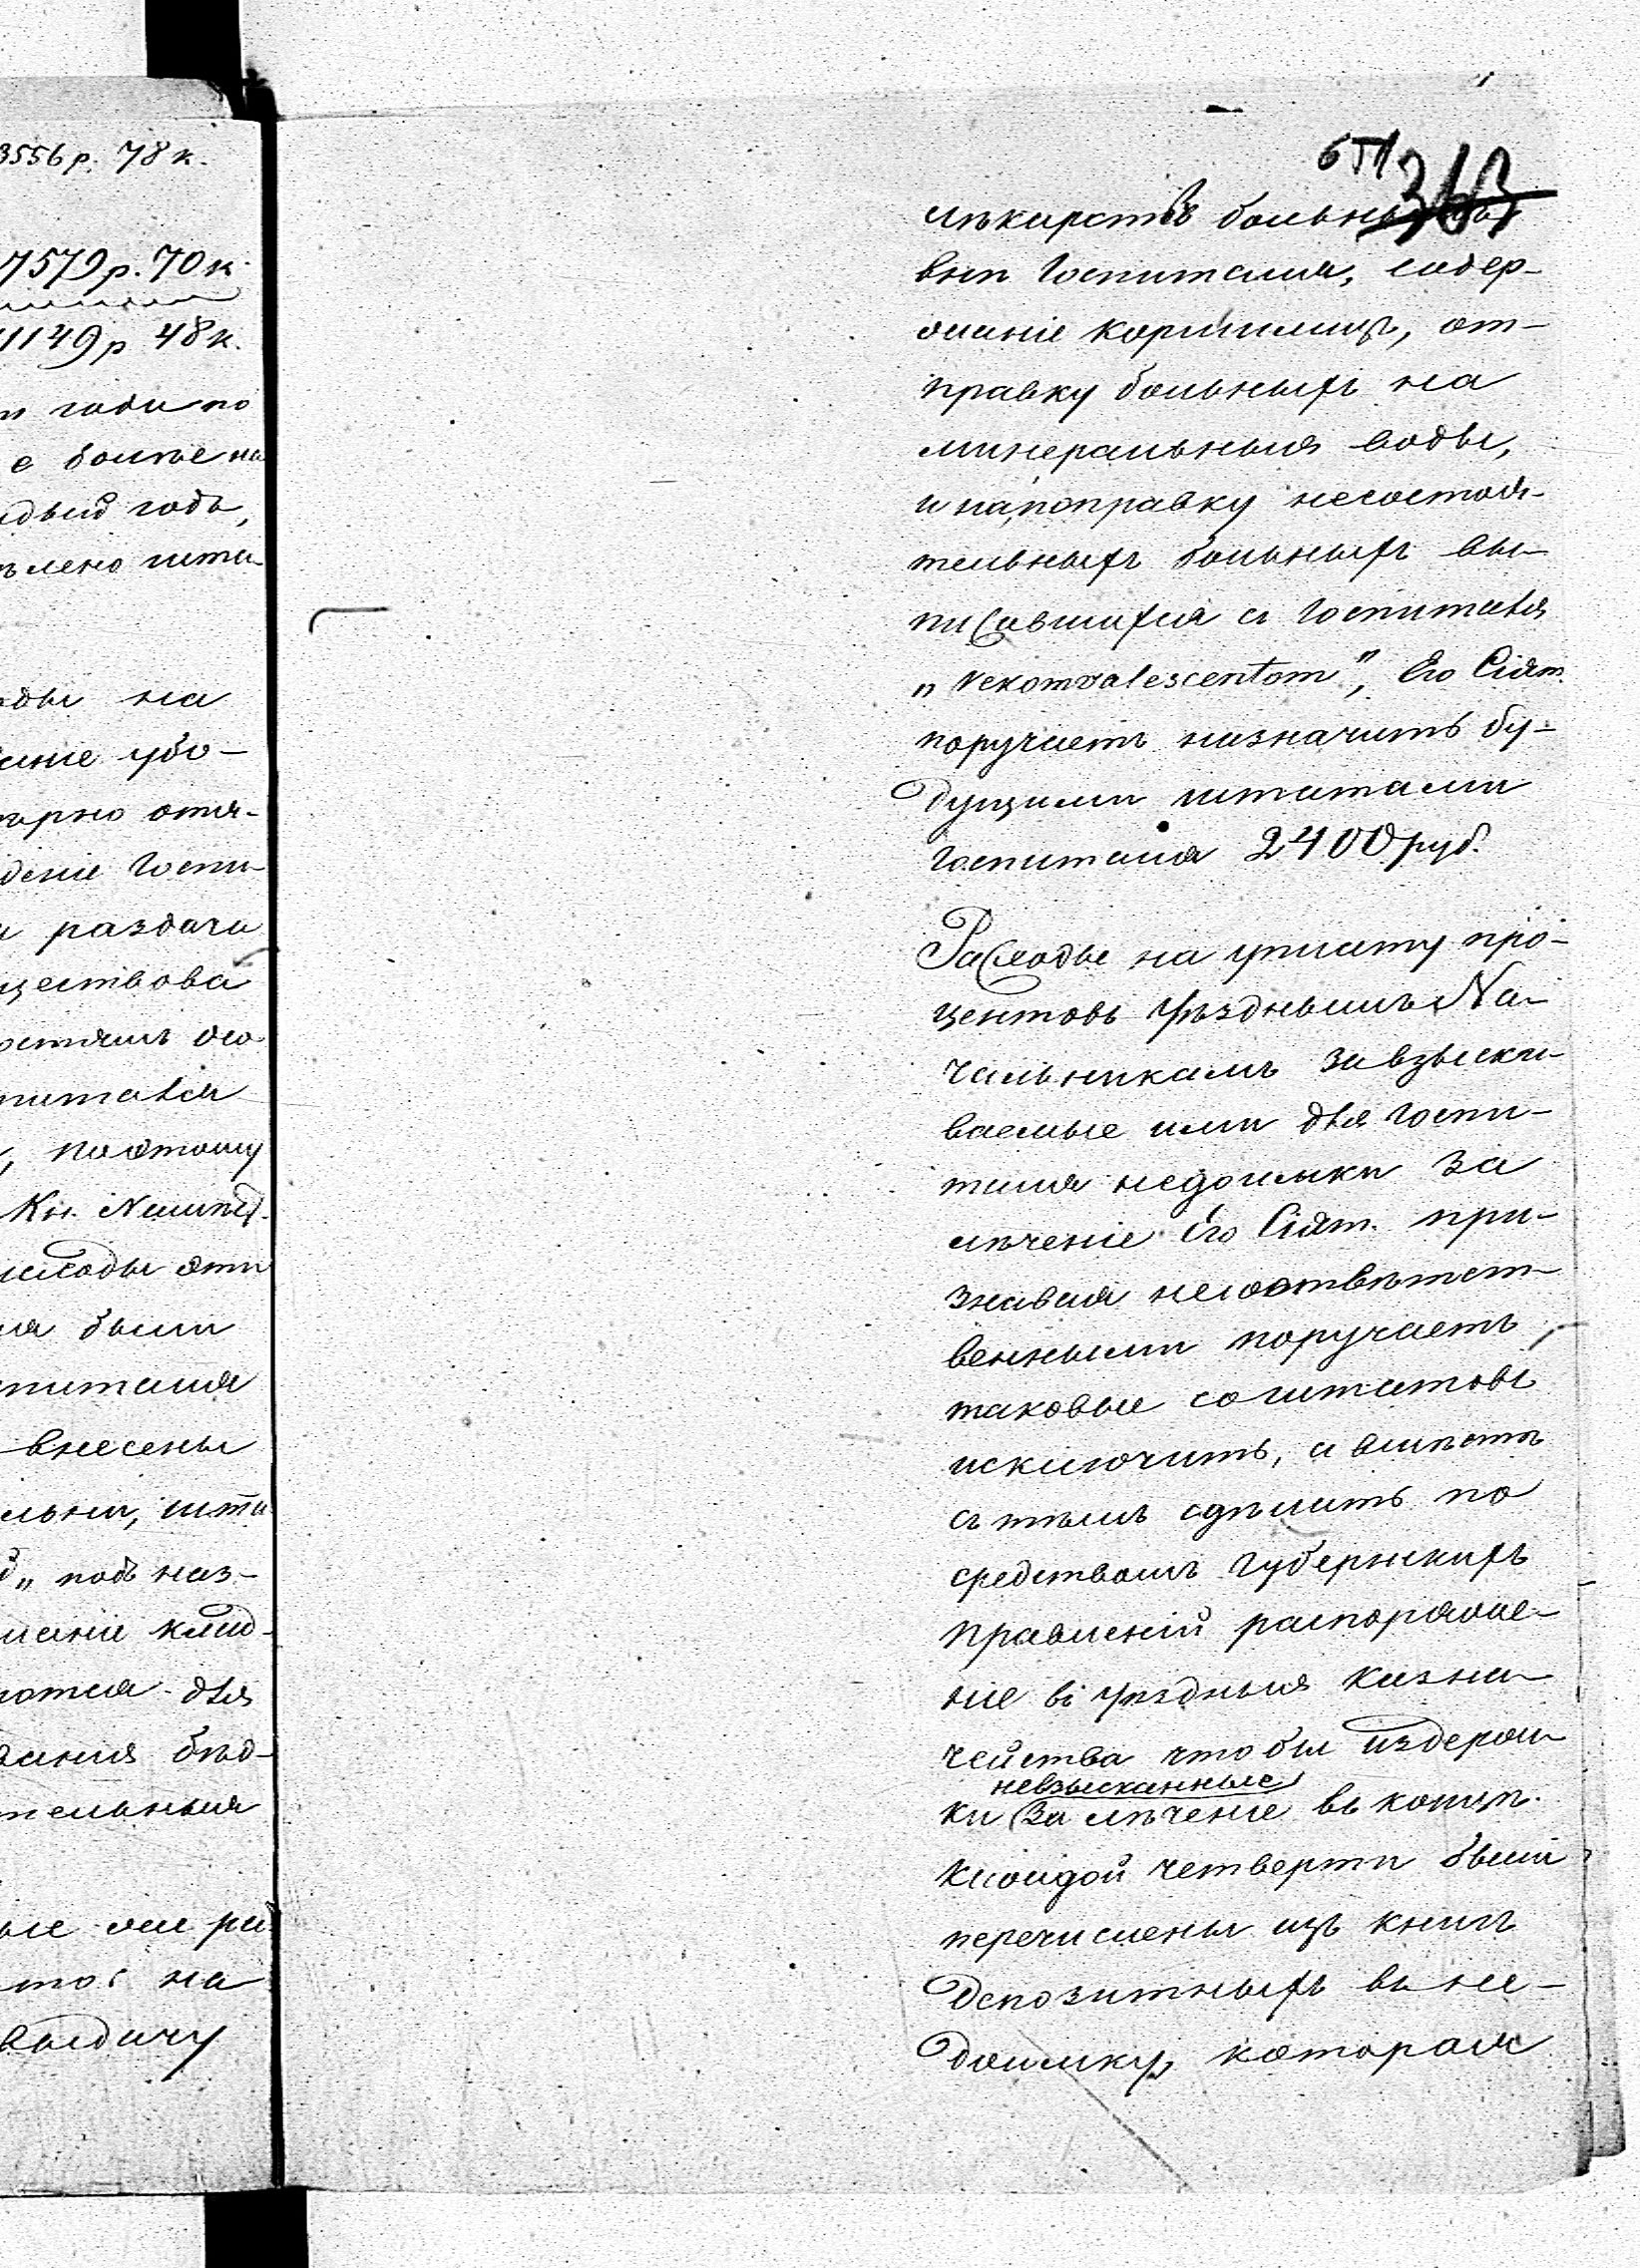 3556 р. 78 к.
7579 р. 70 к.
11149 р 48 к.
годи по
е болѣе на
годъ,
лено шта-
на
ение убо-
отя-
дение Госпи-
и раздачи
ществова
питаля
, поэтому
Кн.
эти
ля были
питаля
внесены
шта-
„ подъ наз-
для
бѣд-
тельныя
же
на
выдачу
лѣкарствъ
внѣ Госпиталя, содер-
жаніе кормилицъ, от-
правку больныхъ на
минеральныя воды,
и на поправку несостоя-
тельныхъ больныхъ вы-
писавшихся съ Госпиталя
„Rekomvalescentom", Его Сіят.
поручаетъ назначить бу-
дущими штатами
Госпиталя 2400 руб.
Расходы на уплату про-
центовъ Уѣзднымъ На-
чальникамъ за взыски-
ваемые ими для Госпи-
таля недоимки за
лѣченіе Его Сіят. при-
знавая несоотвѣтст-
венными поручаетъ
таковые со штатовъ
исключить, а вмѣстѣ
съ тѣмъ сдѣлать по
средствомъ Губернскихъ
Правленій распоряже-
ніе въ уѣздныя Казна-
чейства чтобы издерж-
невзысканные
ки за лѣченіе въ концѣ
каждой четверти были
перечислены изъ книгъ
Депозитныхъ въ не-
доимку, которая